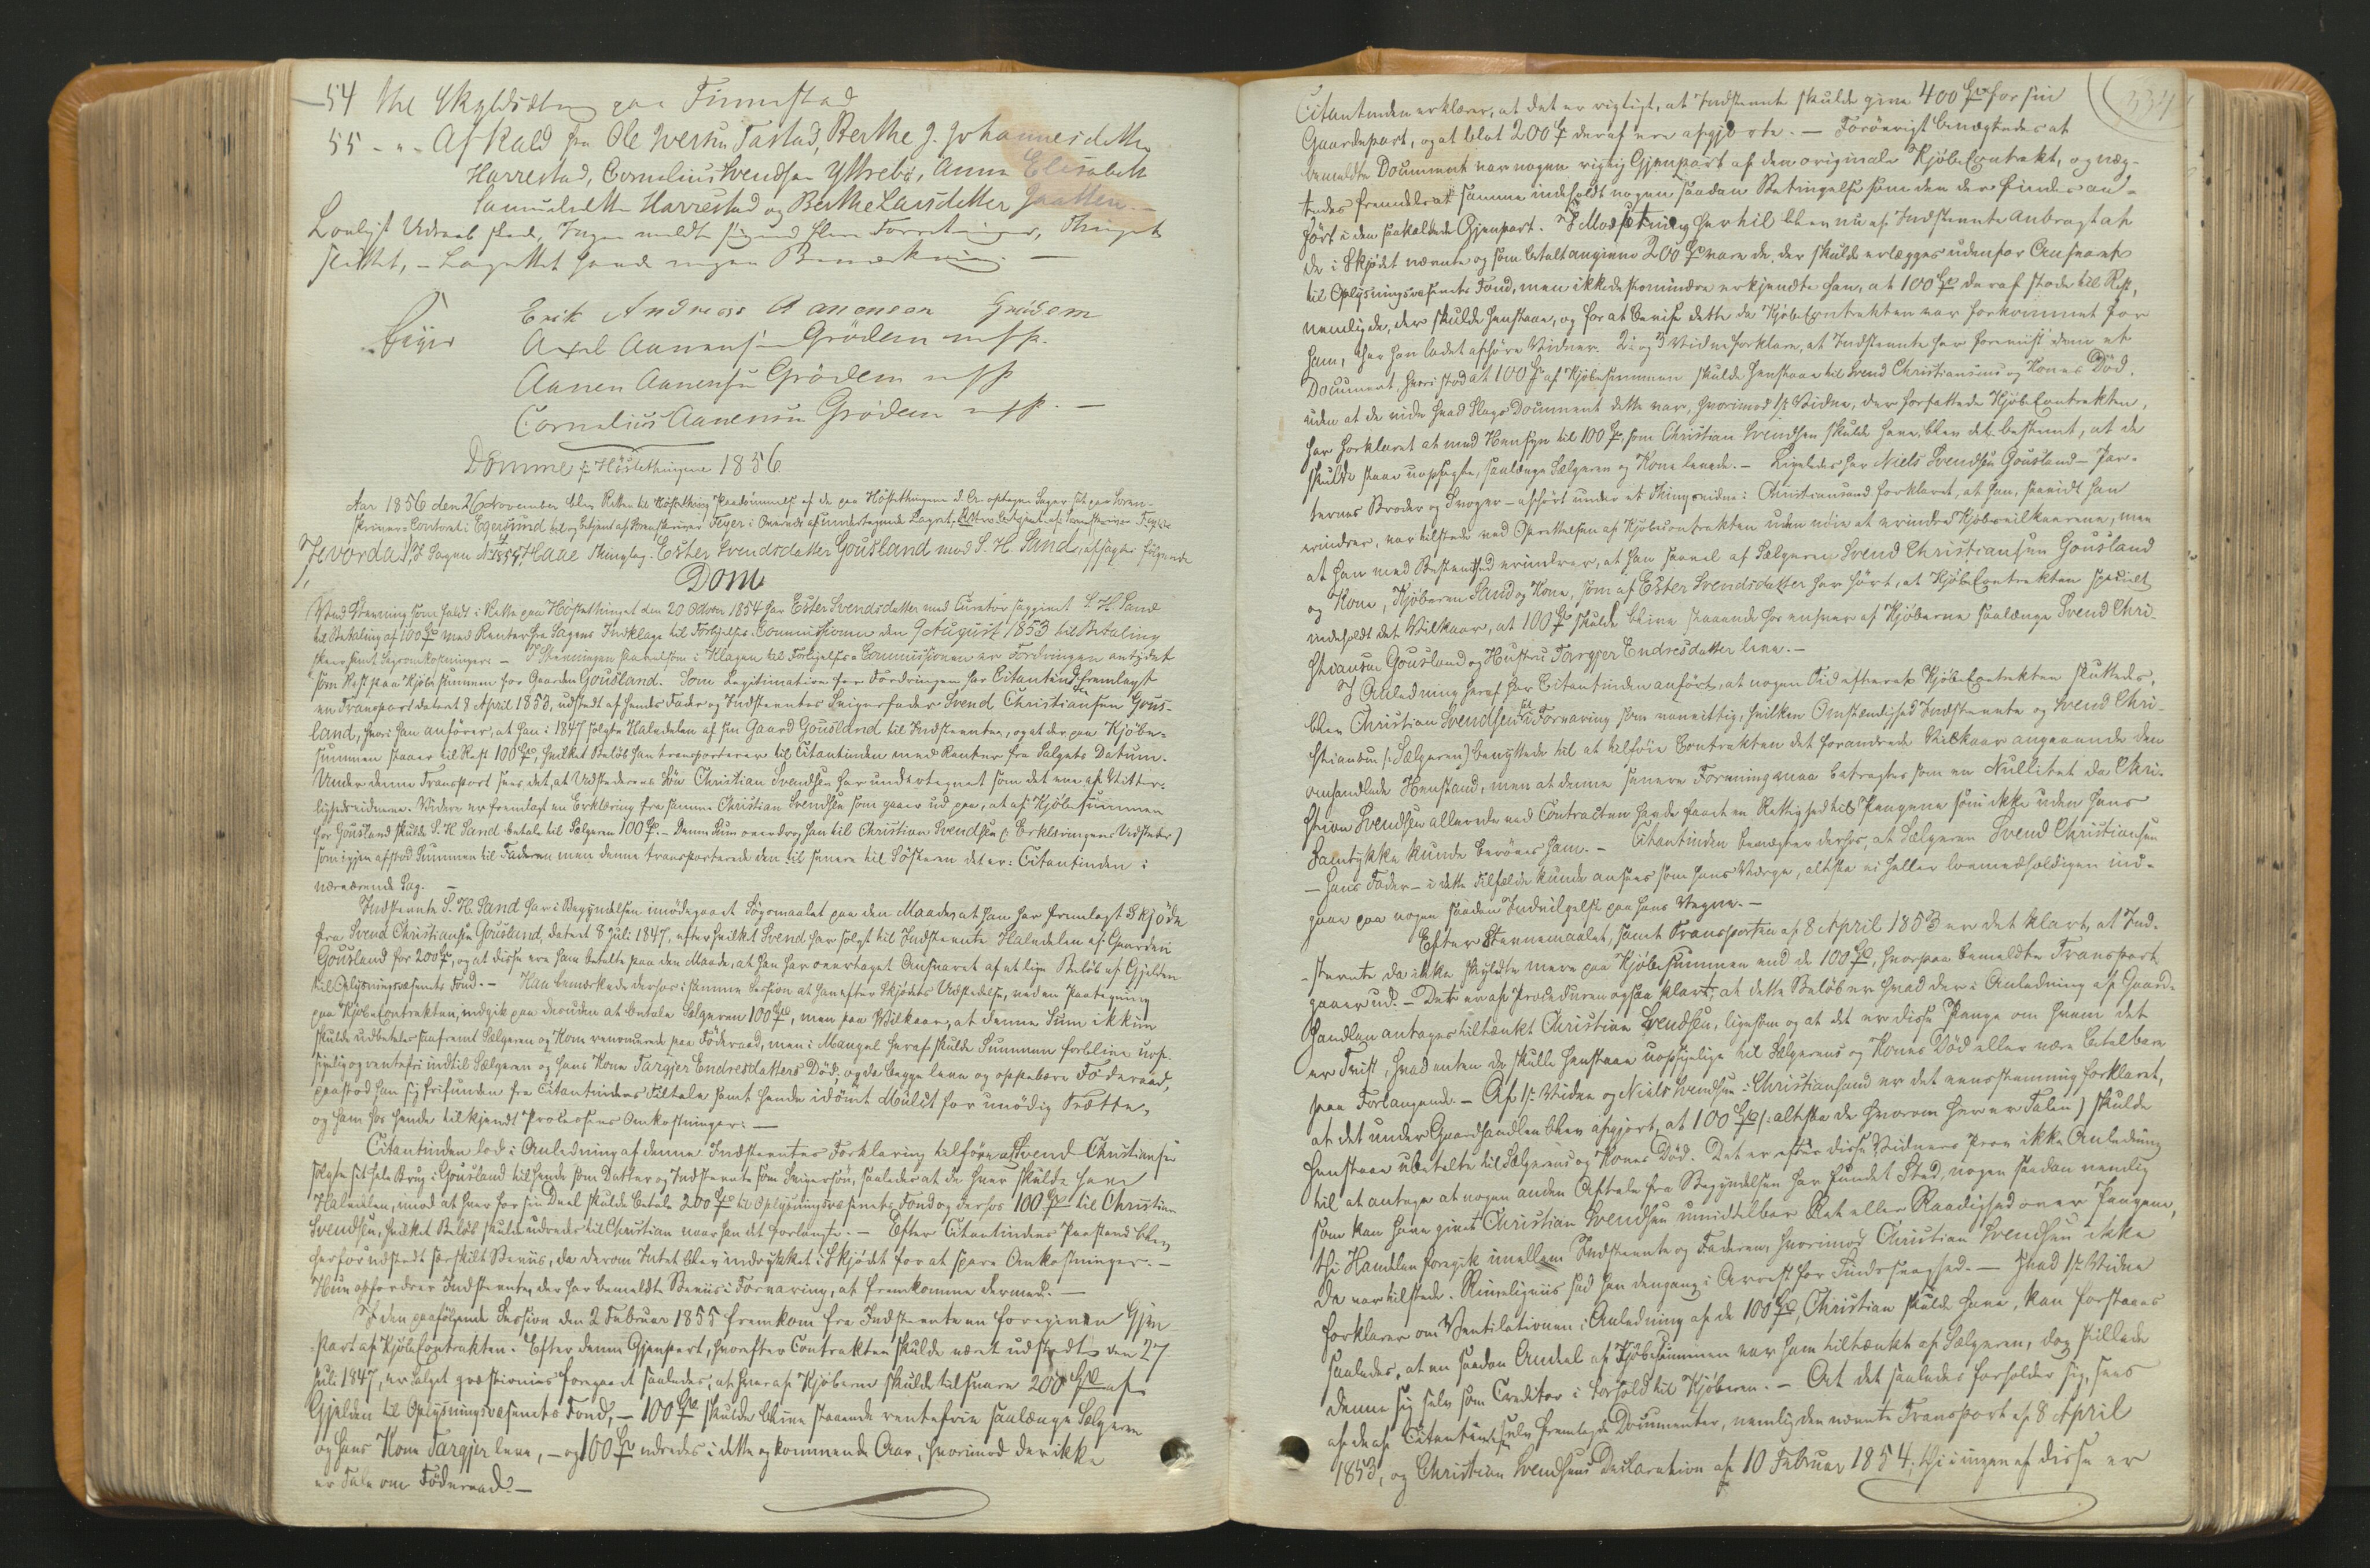 54 Skyldsætn paa Finnestad
55 - " - Afkald fra Ole Iversen Tastad, Berthe J. Johannesdatter
Harrestad, Cornelius Svendsen Ystrebö, Anna Elisabeth
Samuelsdatter Harrestad og Berthe Larsdatter Gaatten. -
Lovligt Udraab skede, Ingen meldte sig med flere Forretninger, Thinget
sluttet, - Lagrettet havde ingen Bemærkning. -
Feyer
Erik Andreas Aanensen Grödem
Axel Aanensen Grödem m f P.
Aanen Aanensen Grödem m f P
Cornelius Aanensen Grödem m f P. -
Domme fr Höstethingene 1856.
Aar 1856 den 26 November blev Retten til Paadömmelse af de paa Höstethingene d. A. optagne Sager sat paa Soren-
skriver-Contoret i Egersund og betjent af Sorenskriver Feyer i Overvær af undertegnede Lagret.
Hvorda, I Sagen No 4 1854, Haae Thinglag. Ester Svendsdatter Gousland mod S. H. Sand, afsagt følgende
Dom
Ved Stevning som faldt i Rette paa Höstethinget den 20 October 1854 har Ester Svendsdatter med Curator sagsögt S. H. Sand
til Betaling af 100 Spd med Renter fra Sagens Indklage til Forligelses-Commissionen den 9 August 1853 til Betaling
skeer samt Sagsomkostninger. - I Stevningen saavelsom i Klagen til Forligelses-Commissionen er Fordringen antydet
som Rest paa Kjøbesummen for Gaarden Gousland. Som Legitimation for Fordringen har Citantinden fremlagt
en Transport dateret 8 April 1853, udstedt af hendes Fader og Indstevntes Svigerfader Svend Christiansen Gous-
land, hvori han anfører, at han i 1847 solgte Halvdelen af sin Gaard Gousland til Indstevnte, og at der paa Kjøbe-
summen staaer til Rest 100 Spd, hvilket Beløb han transporterer til Citantinden med Renter fra Salgets Datum.
Under denne Transport sees det, at Udstederens Søn Christian Svendsen har undertegnet som det ene af Vitter-
lighedsvidnerne. Videre er fremlagt en Erklæring fra samme Christian Svendsen som gaaer ud paa, at af Kjøbesummen
for Gousland skulde S. H. Sand betale til Sælgeren 100 Spd. - Denne Sum overdrog han til Christian Svendsen (: Erklæringens Udsteder)
som igjen afstod Summen til Faderen men denne transporterede den til senere til Søsteren det er: Citantinden i
nærværende Sag. -
Indstevnte S. H. Sand har i Begyndelsen imødegaaet Søgsmaalet paa den Maade, at han har fremlagt Skjøde
fra Svend Christiansen Gousland, dateret 8 Juli 1847, efter hvilket Svend har solgt til Indstevnte Halvdelen af Gaarden
Gousland for 200 Spd, og at disse ere ham betalte paa den Maade, at han har overtaget Ansvaret af et lige Beløb af Gjelden
til Oplysningsvæsenets Fond. - Han bemærkede derhos i samme Session at han efter Skjødets Udstedelse, ved en Paategning
paa Kjøbe Contrakten, indgik paa desuden at betale Sælgeren 100 Spd, men paa Vilkaar, at denne Sum ikkun
skulde udbetales saafremt Sælgeren og Kone renoncerede paa Föderaad, men i Mangel heraf skulde Summen forblive uop-
sigelig og rentefri indtil Sælgeren og hans Kone Targjer Endresdatters Död; og da begge leve og oppebære Föderaad,
paastod han sig frifunden fra Citantindens Tiltale samt hende idömt Mulct for unödig Trætte,
og ham hos hende tilkjendt Processens Omkostninger: -
Citantinden lod i Anledning af denne Indstevntes Forklaring tilföre at Svend Christiansen
solgte sit hele Brug i Gousland til hende som Datter og Indstevnte som Svigersøn, saaledes at de hver skulde have
Halvdelen, imod at hver for sin Deel skulde betale 200 Spd til Oplysningsvæsenets Fond og derhos 100 Spd til Christian
Svendsen, hvilket Beløb skulde udredes til Christian naar han det forlangte. - Efter Citantindens Paastand blev
herfor udstedt særskilt Beviis, da derom Intet blev indrykket i Skjødet for at spare Omkostninger. -
Hun opfordrer Indstevnte, der har bemeldte Beviis i Forvaring, at fremkomme dermed. -
I den paafølgende Session den 2 Februar 1855 fremkom fra Indstevnte en foregiven Gjen-
part af Kjøbe Contrakten. Efter denne Gjenpart, hvorefter Contrakten skulde være udstedt den 27
Juli 1847, er Salget qvæstionis foregaaet saaledes; at hver af Kjøberne skulde tilsvare 200 Spd af
Gjelden til Oplysningsvæsenets Fond, - 100 Spd skulde blive staaende rentefrie saalænge Sælgeren
og hans Kone Targjer leve, - og 100 Spd udredes i dette og kommende Aar, hvorimod der ikke
er Tale om Föderaad. -
334
Citantinden erklærer, at det er rigtigt, at Indstevnte skulde give 400 Spd for sin
Gaardepart, og at blot 200 Spd deraf ere afgjorte. - Forövrigt benægtedes at
bemeldte Document var nogen rigtig Gjenpart af den originale Kjøbe Contrakt, og næg-
tedes fremdeles at samme indeholdt nogen saadan Betingelse som den der findes an-
ført i den saakaldte Gjenpart. I Modsætning hertil blev nu af Indstevnte anbragt at
de i Skjødet nævnte og som betalt angivne 200 Spd vare de, der skulde erlægges udenfor Ansvaret
til Oplysningsvæsenets Fond, men ikkedestomindre erkjendte han, at 100 Spd deraf stode til Rest,
nemlig de, der skulde henstaae, og for at bevise dette da Kjøbe Contrakten var forkommet for
ham, har han ladet afhøre Vidner. 2: og 3 Vidne forklare, at Indstevnte har foreviist dem et
Document, hvori stod at 100 Spd af Kjøbesummen skulde henstaae til Svend Christiansens og Kones Död,
uden at de vide hvad Slags Document dette var, hvorimod 1ste Vidne, der forfattede Kjøbe Contrakten,
har forklaret at med Hensyn til 100 Spd, som Christian Svendsen skulde have, blev det bestemt, at de
skulde staae uopsagte, saalænge Sælgeren og Kone levede. - Ligeledes har Niels Svendsen Gousland - Par-
ternes Broder og Svoger - afhørt under et Thingsvidne i Christiansand forklaret, at han, saavidt han
erindrer, var tilstede ved Oprettelsen af Kjøbecontrakten uden nöie at erindre Kjøbevilkaarene, men
at han med Bestemthed erindrer, at han saavel af Sælgeren Svend Christiansen Gousland
og Kone, Kjøberen Sand og Kone, som af Ester Svendsdatter har hört, at Kjøbe Contrakten specielt
indeholdt det Vilkaar, at 100 Spd skulde blive staaende hos enhver af Kjøberne saalænge Svend Chri-
stiansen Gousland og Hustru Targjer Endresdatter leve. -
I Anledning heraf har Citantinden anført, at nogen Tid efterat Kjøbe Contrakten sluttedes,
blev Christian Svendsen sat i Forvaring som vanvittig, hvilken Omstændighed Indstevnte og Svend Chri-
stiansen (: Sælgeren) benyttede til at tilföie Contrakten det forandrede Vilkaar angaaende den
omhandlede Henstand, men at denne senere Forening maa betragtes som en Nullitet da Chri-
stian Svendsen allerede ved Contracten havde faaet en Rettighed til Pengene som ikke uden hans
Samtykke kunde berøves ham. - Citantinden benægter derhos, at Sælgeren Svend Christiansen
- hans Fader - i dette Tilfælde kunde ansees som hans Værge, altsaa ei heller lovmedholdigen ind-
gaae paa nogen saadan Indvilgelse paa hans Vegne. -
Efter Stevnemaalet, samt Transporten af 8 April 1853 er det klart, at Ind-
stevnte da ikke skyldte mere paa Kjøbesummen end de 100 Spd, hvorpaa bemeldte Transport
gaaer ud. - Det er af Proceduren ogsaa klart, at dette Beløb er hvad der i Anledning af Gaard-
handlen antages tiltænkt Christian Svendsen, ligesom og at det er disse Penge om hvem det
er Tvist, hvad enten de skulle henstaae uopsigelige til Sælgerens og Kones Död eller være betalbare
paa Forlangende. - Af 1ste Vidne og Niels Svendsen i Christiansand er det eensstemmig forklaret,
at det under Gaardhandlen blev afgjort, at 100 Spd (: altsaa de hvorom her er Talen) skulde
henstaae ubetalte til Sælgerens og Kones Död. Det er efter disse Vidners Prov ikke Anledning
til at antage at nogen anden Aftale fra Begyndelsen har fundet Sted, nogen saadan nemlig
som kan have givet Christian Svendsen umiddelbar Ret eller Raadighed over Pengene,
thi Handlen foregik imellem Indstevnte og Faderen, hvorimod Christian Svendsen ikke
da var tilstede. Rimeligviis sad han dengang i Arrest for Sindssvaghed. - Hvad 1ste Vidne
forklarer om Ventilationen i Anledning af de 100 Spd, Christian skulde have, kan forstaaes
saaledes, at en saadan Andeel af Kjøbesummen var ham tiltænkt af Sælgeren, dog stillede
denne sig selv som Creditor i Forhold til Kjøberen. - At det saaledes forholder sig, sees
af de af Citantinden selv fremlagde Documenter, nemlig den nævnte Transport af 8 April
1853, og Christian Svendsens Declaration af 10 Februar 1854; thi i ingen af disse er